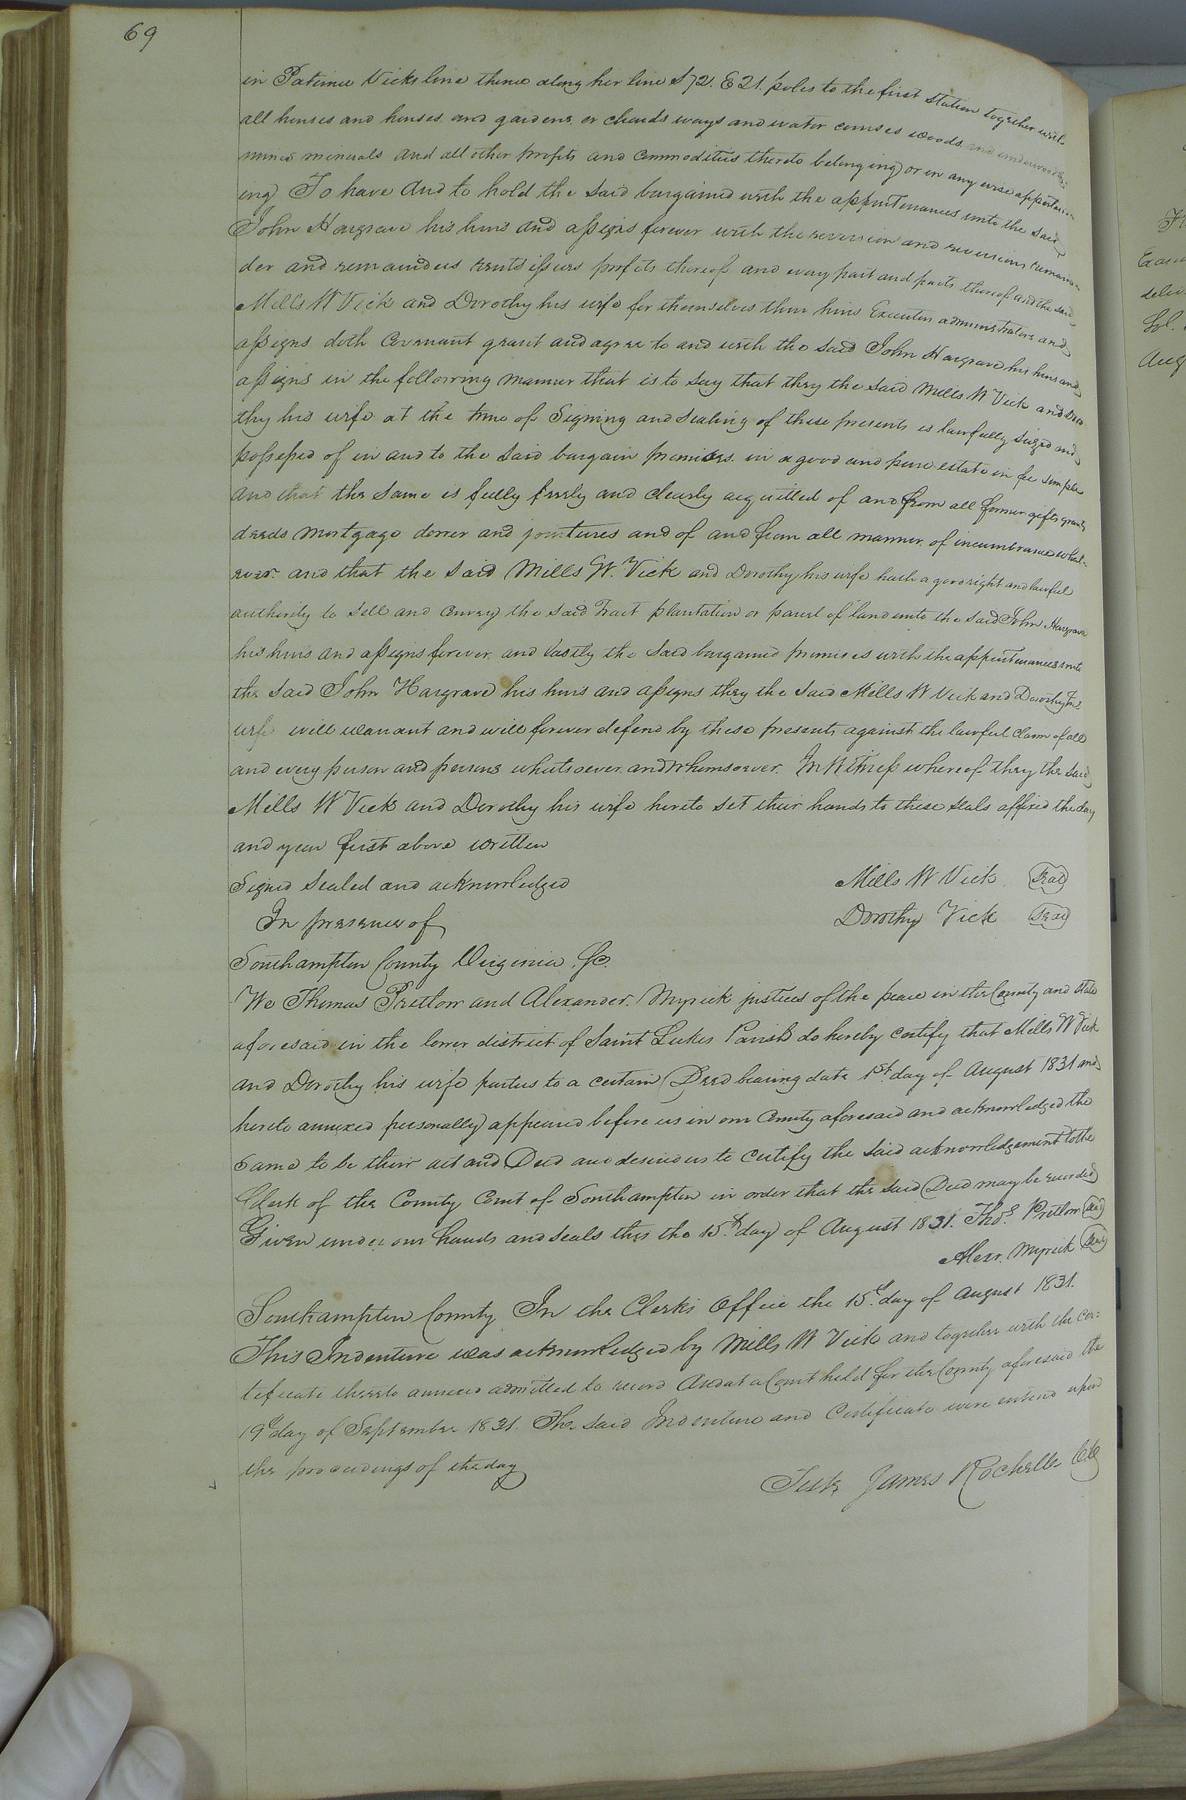 69
in Patience Vicks line thence along her line S 72. E 21. poles to the first Station together with
all houses and houses and gardens or chards ways and water courses woods and underwoods
mines minerals and all other profits and commodities thereto belonging or in any wise appertain
ing To have And to hold the said bargained with the appurtenances unto the said
John Hargrave his heirs and assigns forever with the reversion and reversions remain
der and remainders rents issues profits thereof and every part and parts thereof and the said
Mills W Vick and Dorothy his wife for themselves their heirs Executors administrators and
assigns doth Covenant grant and agree to and with the said John Hargrave his heirs and
assigns in the following manner that is to say that they the said Mills W Vick and Doro
thy his wife at the time of Signing and Sealing of these presents is lawfully siezed and
possessed of in and to the said bargain premises in a good and pure estate in fee simple
and that the same is fully freely and clearly acquitted of and from all former gifts grants
deeds mortgage dower and jointures and of and from all manner of incumbrance what-
ever and that the said Mills W. Vick and Dorothy his wife hath a good right and lawful
authority to sell and convey the said Tract plantation or parcel of land unto the said John Hargrave
his heirs and assigns forever and lastly the said bargained premises with the appurtenances unto
the said John Hargrave his heirs and assigns they the said Mills W Vick and Dorothy his
wife will warrant and will forever defend by these presents against the lawful claim of all
and every person and persons whatsoever and whomsoever. In Witness whereof they the said
Mills W Vick and Dorothy his wife hereto set their hands to these seals affixed the day
and year first above written
Signed Sealed and acknowledged Mills W Vick Seal
In presence of Dorothy Vick Seal
Southampton County Virginia Sc.
We Thomas Pretlow and Alexander Myrick justices of the peace in the County and State
aforesaid in the lower district of Saint Lukes Parish do hereby certify that Mills W Vick
and Dorothy his wife parties to a certain Deed bearing date 1st day of August 1831 and
hereto annexed personally appeared before us in our County aforesaid and acknowledged the
same to be their act and Deed and desired us to certify the said acknowledgement to the
Clerk of the County Court of Southampton in order that the said Deed may be recorded
Given under our hands and seals this the 15th day of August 1831. Thos. Pretlow Seal
Alexr. Myrick Seal
Southampton County In the Clerks Office the 15th day of August 1831.
This Indenture was acknowledged by Mills W Vick and together with the cer=
tificate thereto annexed admitted to record And at a Court held for the County aforesaid the
19th day of September 1831. The said Indenture and Certificate were entered upon
the proceedings of the day
Teste James Rochelle CC